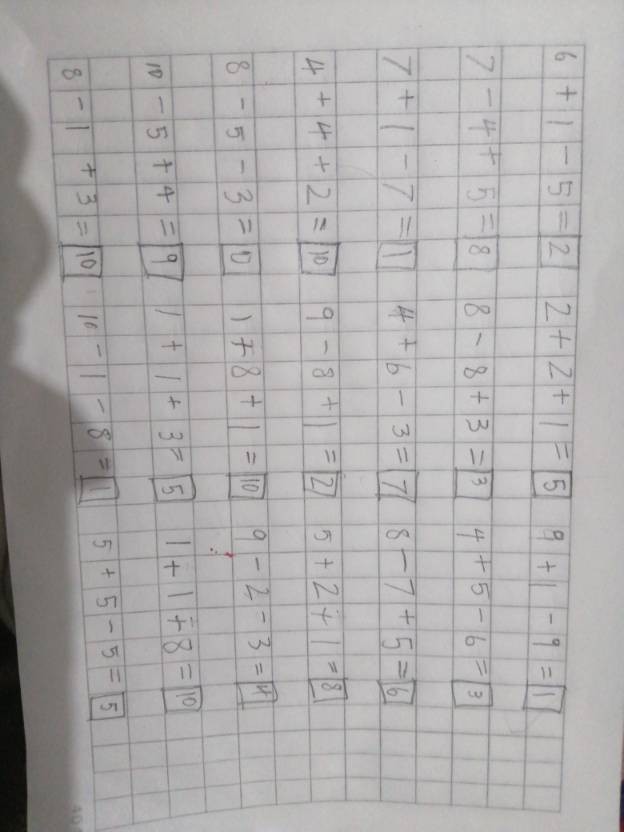 6 + 1 - 5 = 2 2 + 2 + 1 = 5 9 + 1 - 9 = 1
7 - 4 + 5 = 8 8 - 8 + 3 = 3 4 + 5 - 6 = 3
7 + 1 - 7 = 1 4 + 6 - 3 = 7 8 - 7 + 5 = 6
4 + 4 + 2 = 10 9 - 8 + 1 = 2 5 + 2 + 1 = 8
8 - 5 - 3 = 0 1 + 8 + 1 = 10 9 - 2 - 3 = 4
10 - 5 + 4 = 9 1 + 1 + 3 = 5 1 + 1 + 8 = 10
8 - 1 + 3 = 10 10 - 1 - 8 = 1 5 + 5 - 5 = 5